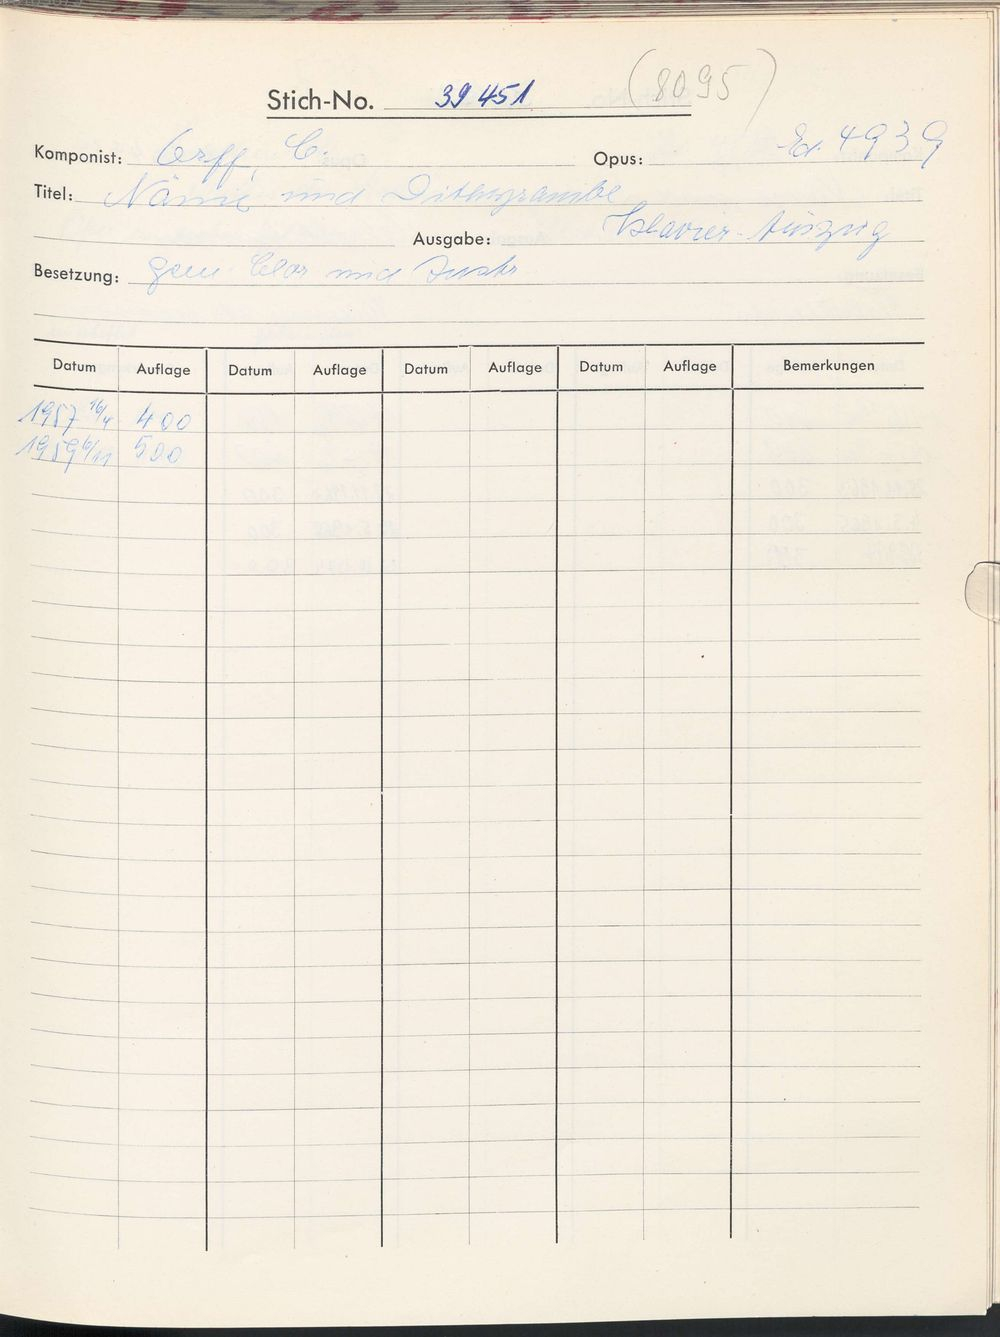 Stich-No. 39451 (8095)
Komponist: Orff, C. Opus: Ed 4939
Titel: Nänie und Dithyrambe
Ausgabe: Klavier-Auszug
Besetzung: gem. Chor und Instr
Datum Auflage Datum Auflage Datum Auflage Datum Auflage Bemerkungen
1957 16/4 400
1959 6/11 500